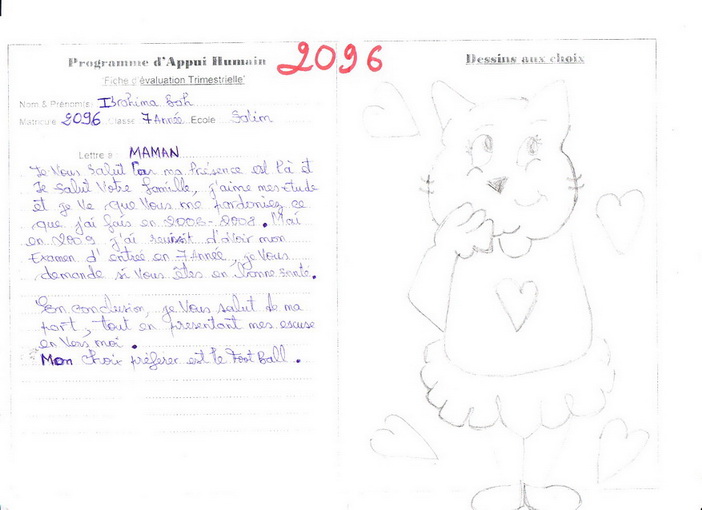 2096
Programme d'Appui Humain
'Fiche d'évaluation Trimestrielle'
Nom & Prénoms: Ibrahima Bah
Matricule 2096 Classe 7 Année Ecole Salim
Lettre à MAMAN
Je Vous Salut Par ma Présence est l'à et
Je Salut Votre famille, j'aime mes étude
et je Ve que Vous me pardonniez ce
que j'ai fais en 2006-2008. Mai
en 2009 j'ai reussit d'avoir mon
Examen d'entrée en 7 Année, je Vous
demande si Vous êtes en bonne santé.
En conclusion, je Vous salut de ma
part, tout en presentant mes escuse
en Vers moi.
Mon choix préferer est le Foot Ball.
Dessins aux choix